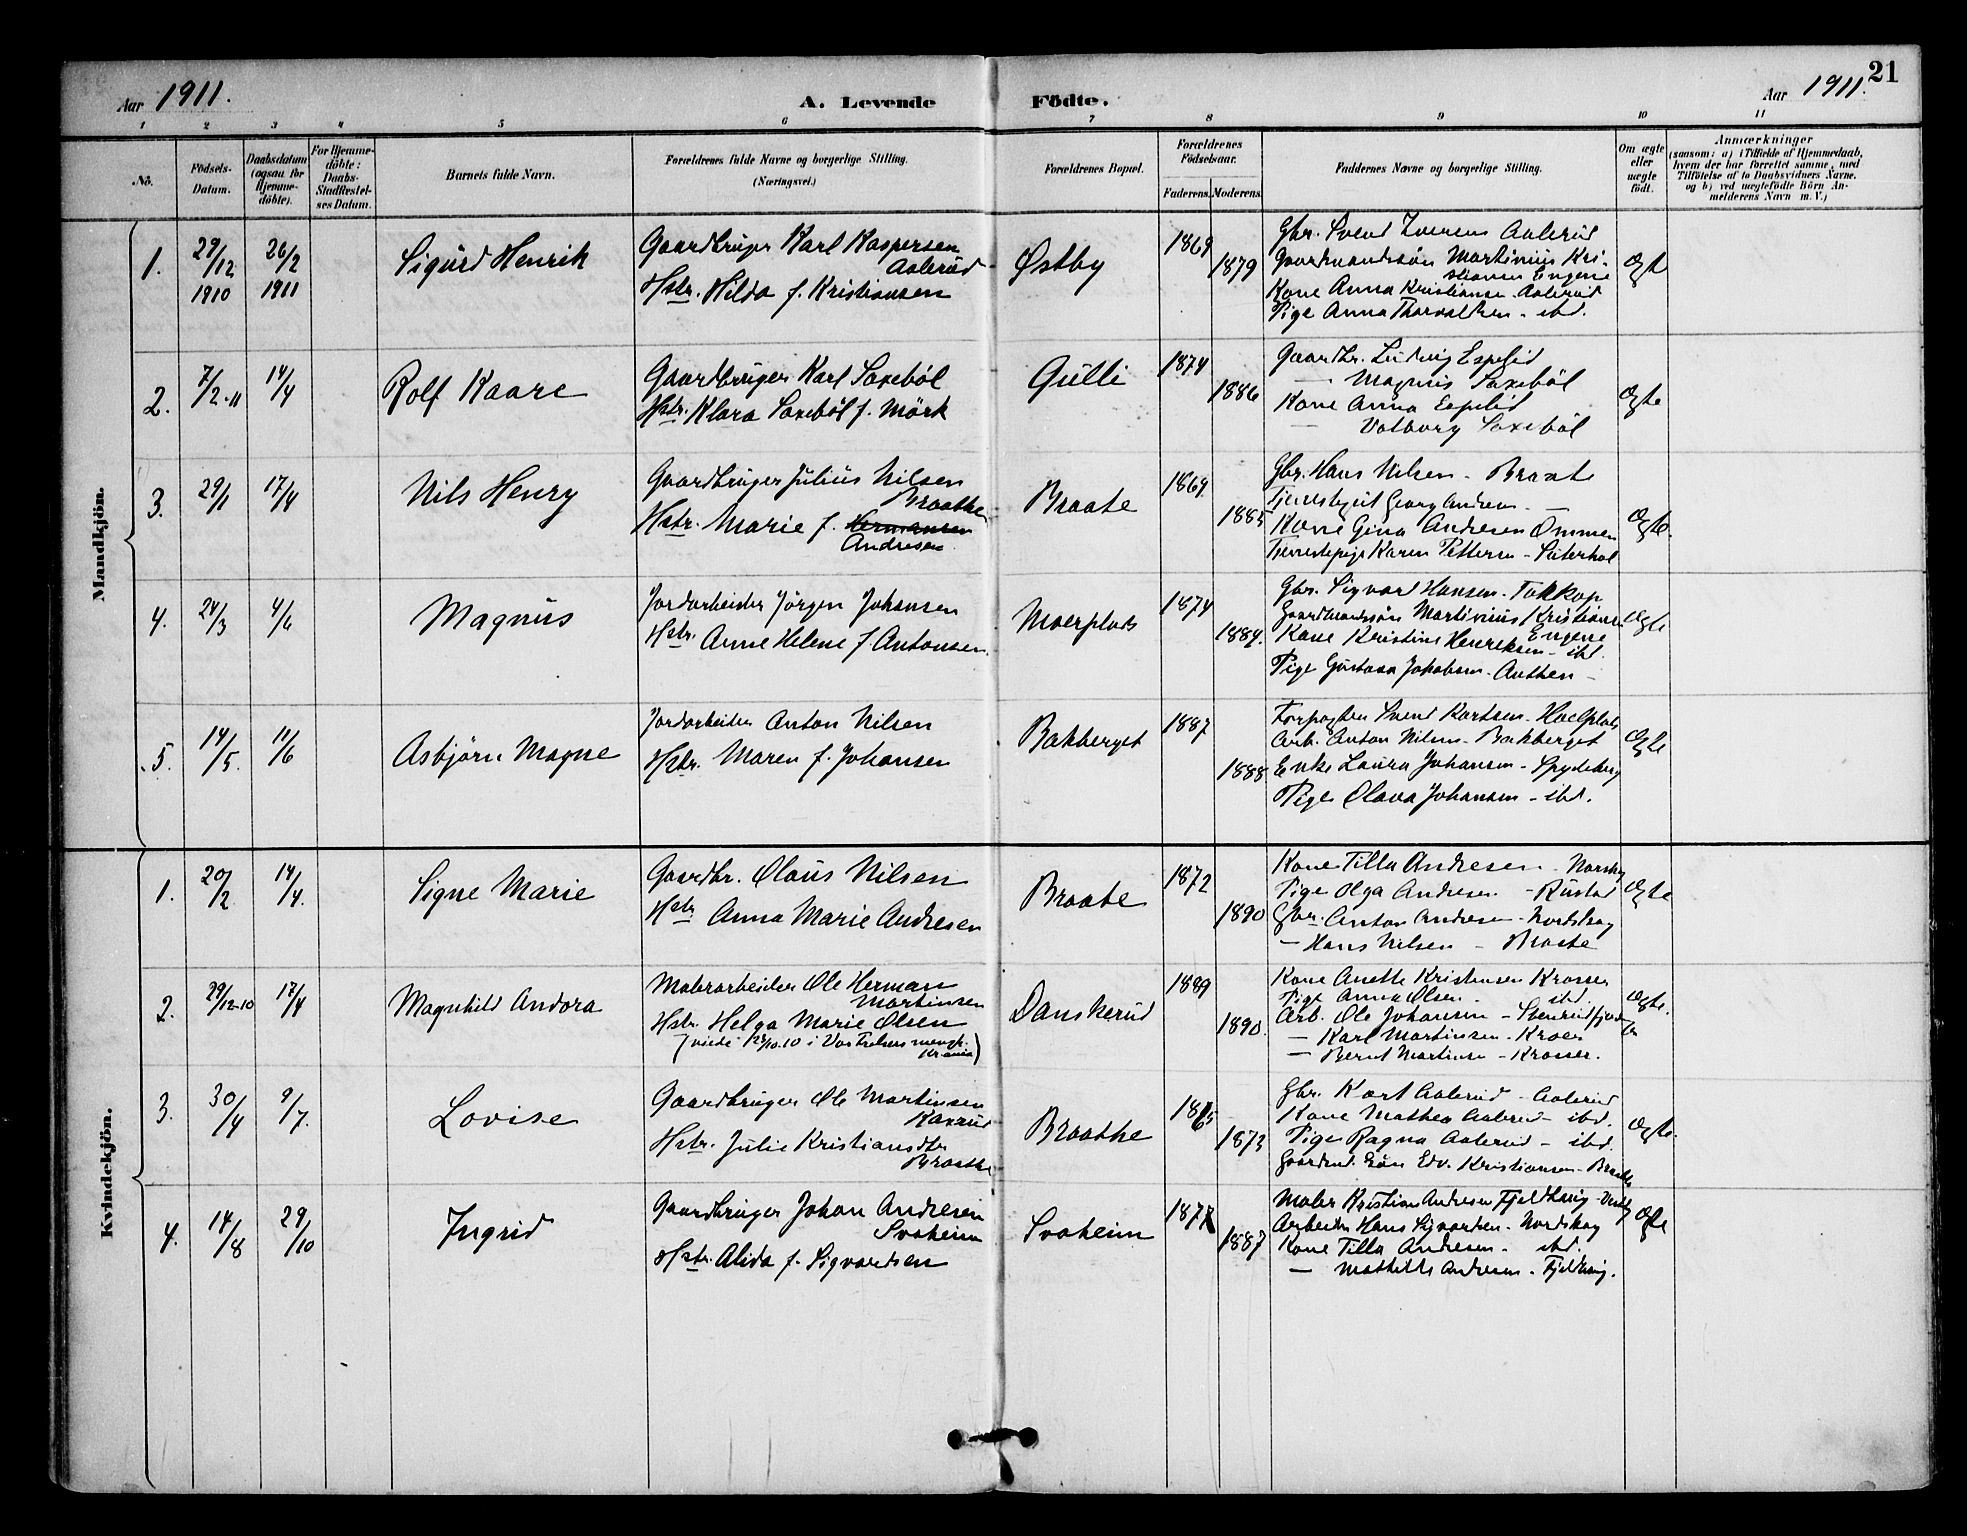 Aar 1911. A. Levende Födte. Aar 1911. 21
1 2 3 4 5 6 7 8 9 10 11
No. Födsels-Datum. Daabsdatum (ogsaa for Hjemmedöbte). For Hjemmedöbte: Daabs-Stadfæstelses Datum. Barnets fulde Navn. Forældrenes fulde Navne og borgerlige Stilling. (Næringsvei.) Forældrenes Bopæl. Forældrenes Födselsaar. Faderens. Moderens. Faddernes Navne og borgerlige Stilling. Om ægte eller uægte födt. Anmærkninger (saasom: a) i Tilfælde af Hjemmedaab, hvem der har forrettet samme, med Tilföielse af to Daabsvidners Navne. og b) ved uægtefödte Börn Anmelderens Navn m. V.)
Mandkjön.
1. 29/12 1910 26/2 1911 Sigurd Henrik
Gaardbruger Karl Kaspersen
Aalerud
Hstr. Hilda f. Kristiansen
Østby 1869 1879
Gbr. Svend Iversen Aalerud
Gaardmandssøn Martinius Kri-
stiansen Engene
Kone Anna Kristiansen Aalerud
Pige Anna Thorvaldsen - ibd.
Ægte
2. 7/2-11 14/4 Rolf Kaare
Gaardbruger Karl Saxebøl
Hstr. Klara Saxebøl f. Mörk
Gulli 1874 1886
Gaardbr. Ludvig Espelid
— Magnus Saxebøl
Kone Anna Espelid
— Valborg Saxebøl
Ægte
3. 29/1 17/4 Nils Henry
Gaardbruger Julius Nilsen
Braathe
Hstr. Marie f. Hermansen
Andresen.
Braate 1869 1885
Gbr. Hans Nilsen - Braate
Tjenestegut Georg Andresen —
Kone Gina Andresen Ommen
Tjenestepige Karen Pettersen -
Ægte.
4. 24/3 4/6 Magnus
Jordarbeider Jørgen Johansen
Hstr. Anne Helene f. Antonsen.
Moerplads 1874 1884.
Gbr. Sigvard Hansen -
Gaardmandssøn Martinius Kristiansen
Engene
Kone Kristine Henriksen - ibd.
Pige Gustava Jakobsen - Authen -
Ægte
5. 14/5. 11/6 Asbjørn Magne
Jordarbeider Anton Nilsen
Hstr. Maren f. Johansen
Bakberget 1887 1888
Forpagter Svend Karlsen -
Arb. Anton Nilsen - Bakberget
Enke Laura Johansen - Spydeberg
Pige Olava Johansen - ibd.
Ægte
Kvindekjön.
1. 20/2 14/4. Signe Marie
Gaardbr. Olaus Nilsen
Hstr Anna Marie Andresen
Braate 1872 1890
Kone Tilla Andresen - Nordskog
Pige Olga Andresen - Rustad
Gbr. Anton Andresen - Nordskog
— Hans Nilsen - Braate
Ægte
2. 29/12-10 17/4 Magnhild Andora
Malerarbeider Ole Herman
Martinsen
Hstr. Helga Marie Olsen
(viede /10.10 i Vor Frelsers mengh.
Kr.ania)
Danskerud 1889 1890.
Kone Anette Kristensen Kroer
Pige Anna Olsen - ibd.
Arb. Ole Johansen -
— Karl Martinsen - Kroer
— Bernt Martinsen - Kroer.
Ægte.
3. 30/4 9/7. Lovise
Gaardbruger Ole Martinsen
Kaxrud
Hstr. Julie Kristiansdtr
Braathe
Braathe 1865 1873
Gbr. Karl Aalerud - Aalerud
Kone Mathea Aalerud - ibd.
Pige Ragna Aalerud - ibd.
Gaardmd. søn Edv. Kristiansen - Braathe
Ægte.
4. 14/8 29/10 Ingrid
Gaardbruger Johan Andresen
Svaheim
Hstr. Alida f. Sigvardsen
Svaheim 1877 1887
Maler Kristian Andresen Fjeldhaug -
Arbeider Hans Sigvardsen - Nordskog
Kone Tilla Andresen - ibd.
— Mathilde Andresen - Fjeldhaug.
Ægte